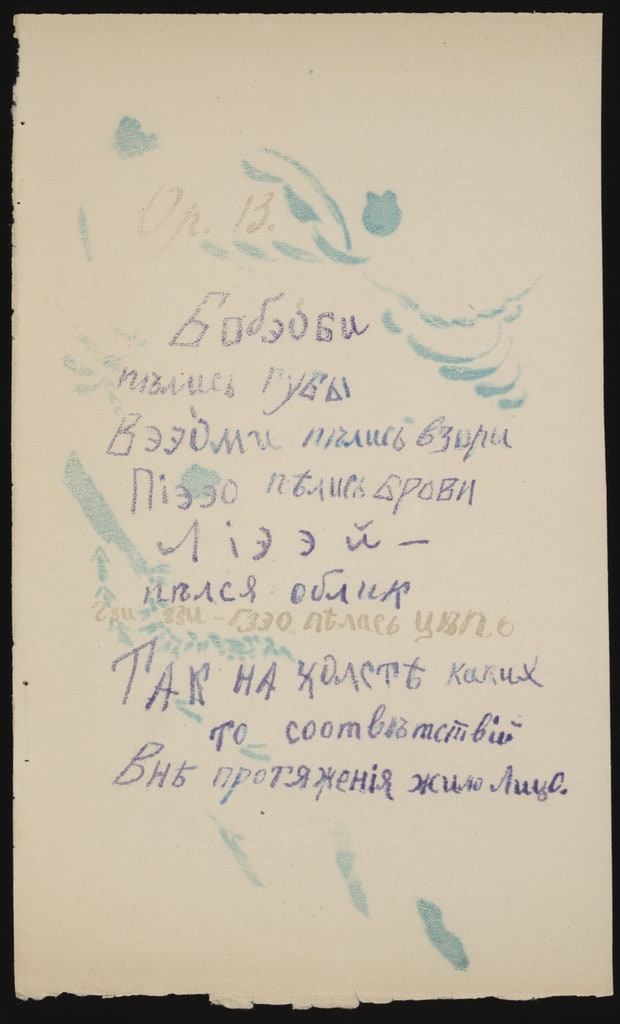 Ор. В.
Бобэоби
пѣлись губы
Вээоми пѣлись взоры
Піээо пѣлись брови
Ліэээй —
пѣлся облик
Гзи-гзи-гзэо пѣлась цѣпь
Так на холстѣ каких
то соотвѣтствій
Внѣ протяженія жило Лицо.